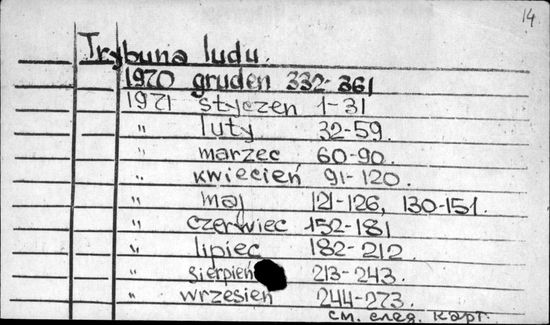 14.
Trybuna ludu.
1970 grudzen 332-361
1971 styczen 1-31
" luty 32-59.
" marzec 60-90.
" kwiecień 91-120.
" maj 121-126, 130-151.
" czerwiec 152-181
" lipiec 182-212.
" sierpień 213-243.
" wrzesień 244-273.
см. след. карт.